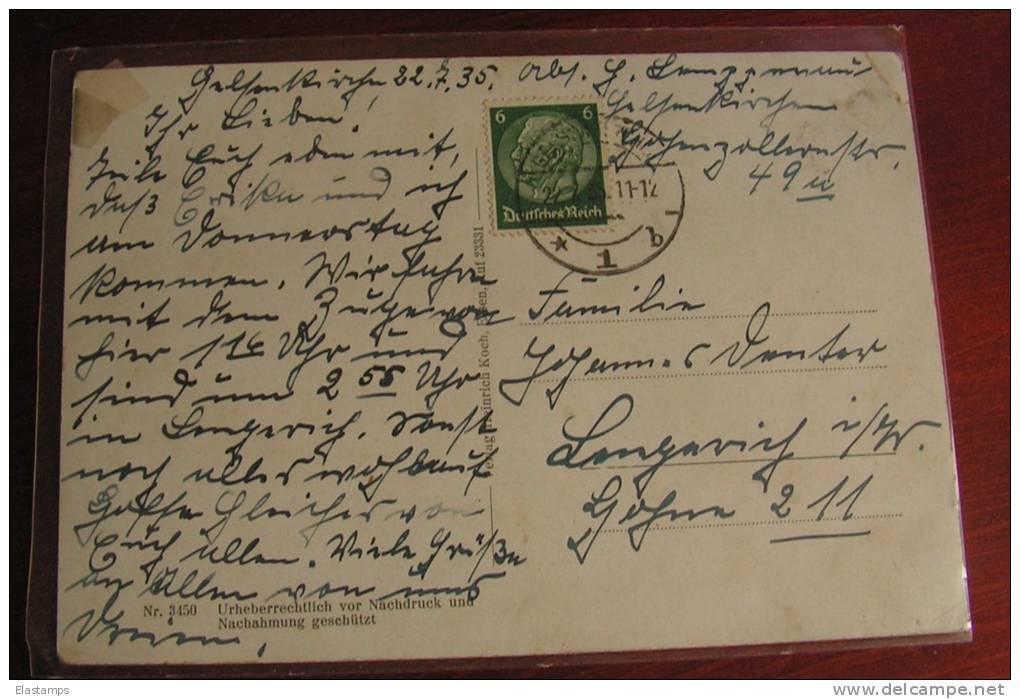 Gelsenkirchen 22.7.35.
Ihr Lieben,
Teile Euch eben mit,
daß Erika und ich
am Donnerstag
kommen. Wir fahren
mit dem Zuge von
hier 1 16 Uhr und
sind um 2 55 Uhr
in Lengerich. Sonst
noch alles wohlauf
Hoffe Gleiches von
Euch allen. Viele Grüße
an Allen von uns
Dreien.
Abs. H.
Gelsenkirchen
Hohenzollernstr.
49 a
6 6
Deutsches Reich
11-12
* 1 b
Familie
Johannes
Lengerich i/W.
Hohne 211
Verlag Heinrich Koch, Essen, Ruf 23331
Nr. 3450 Urheberrechtlich vor Nachdruck und
Nachahmung geschützt
Elastamps
delcampe.net